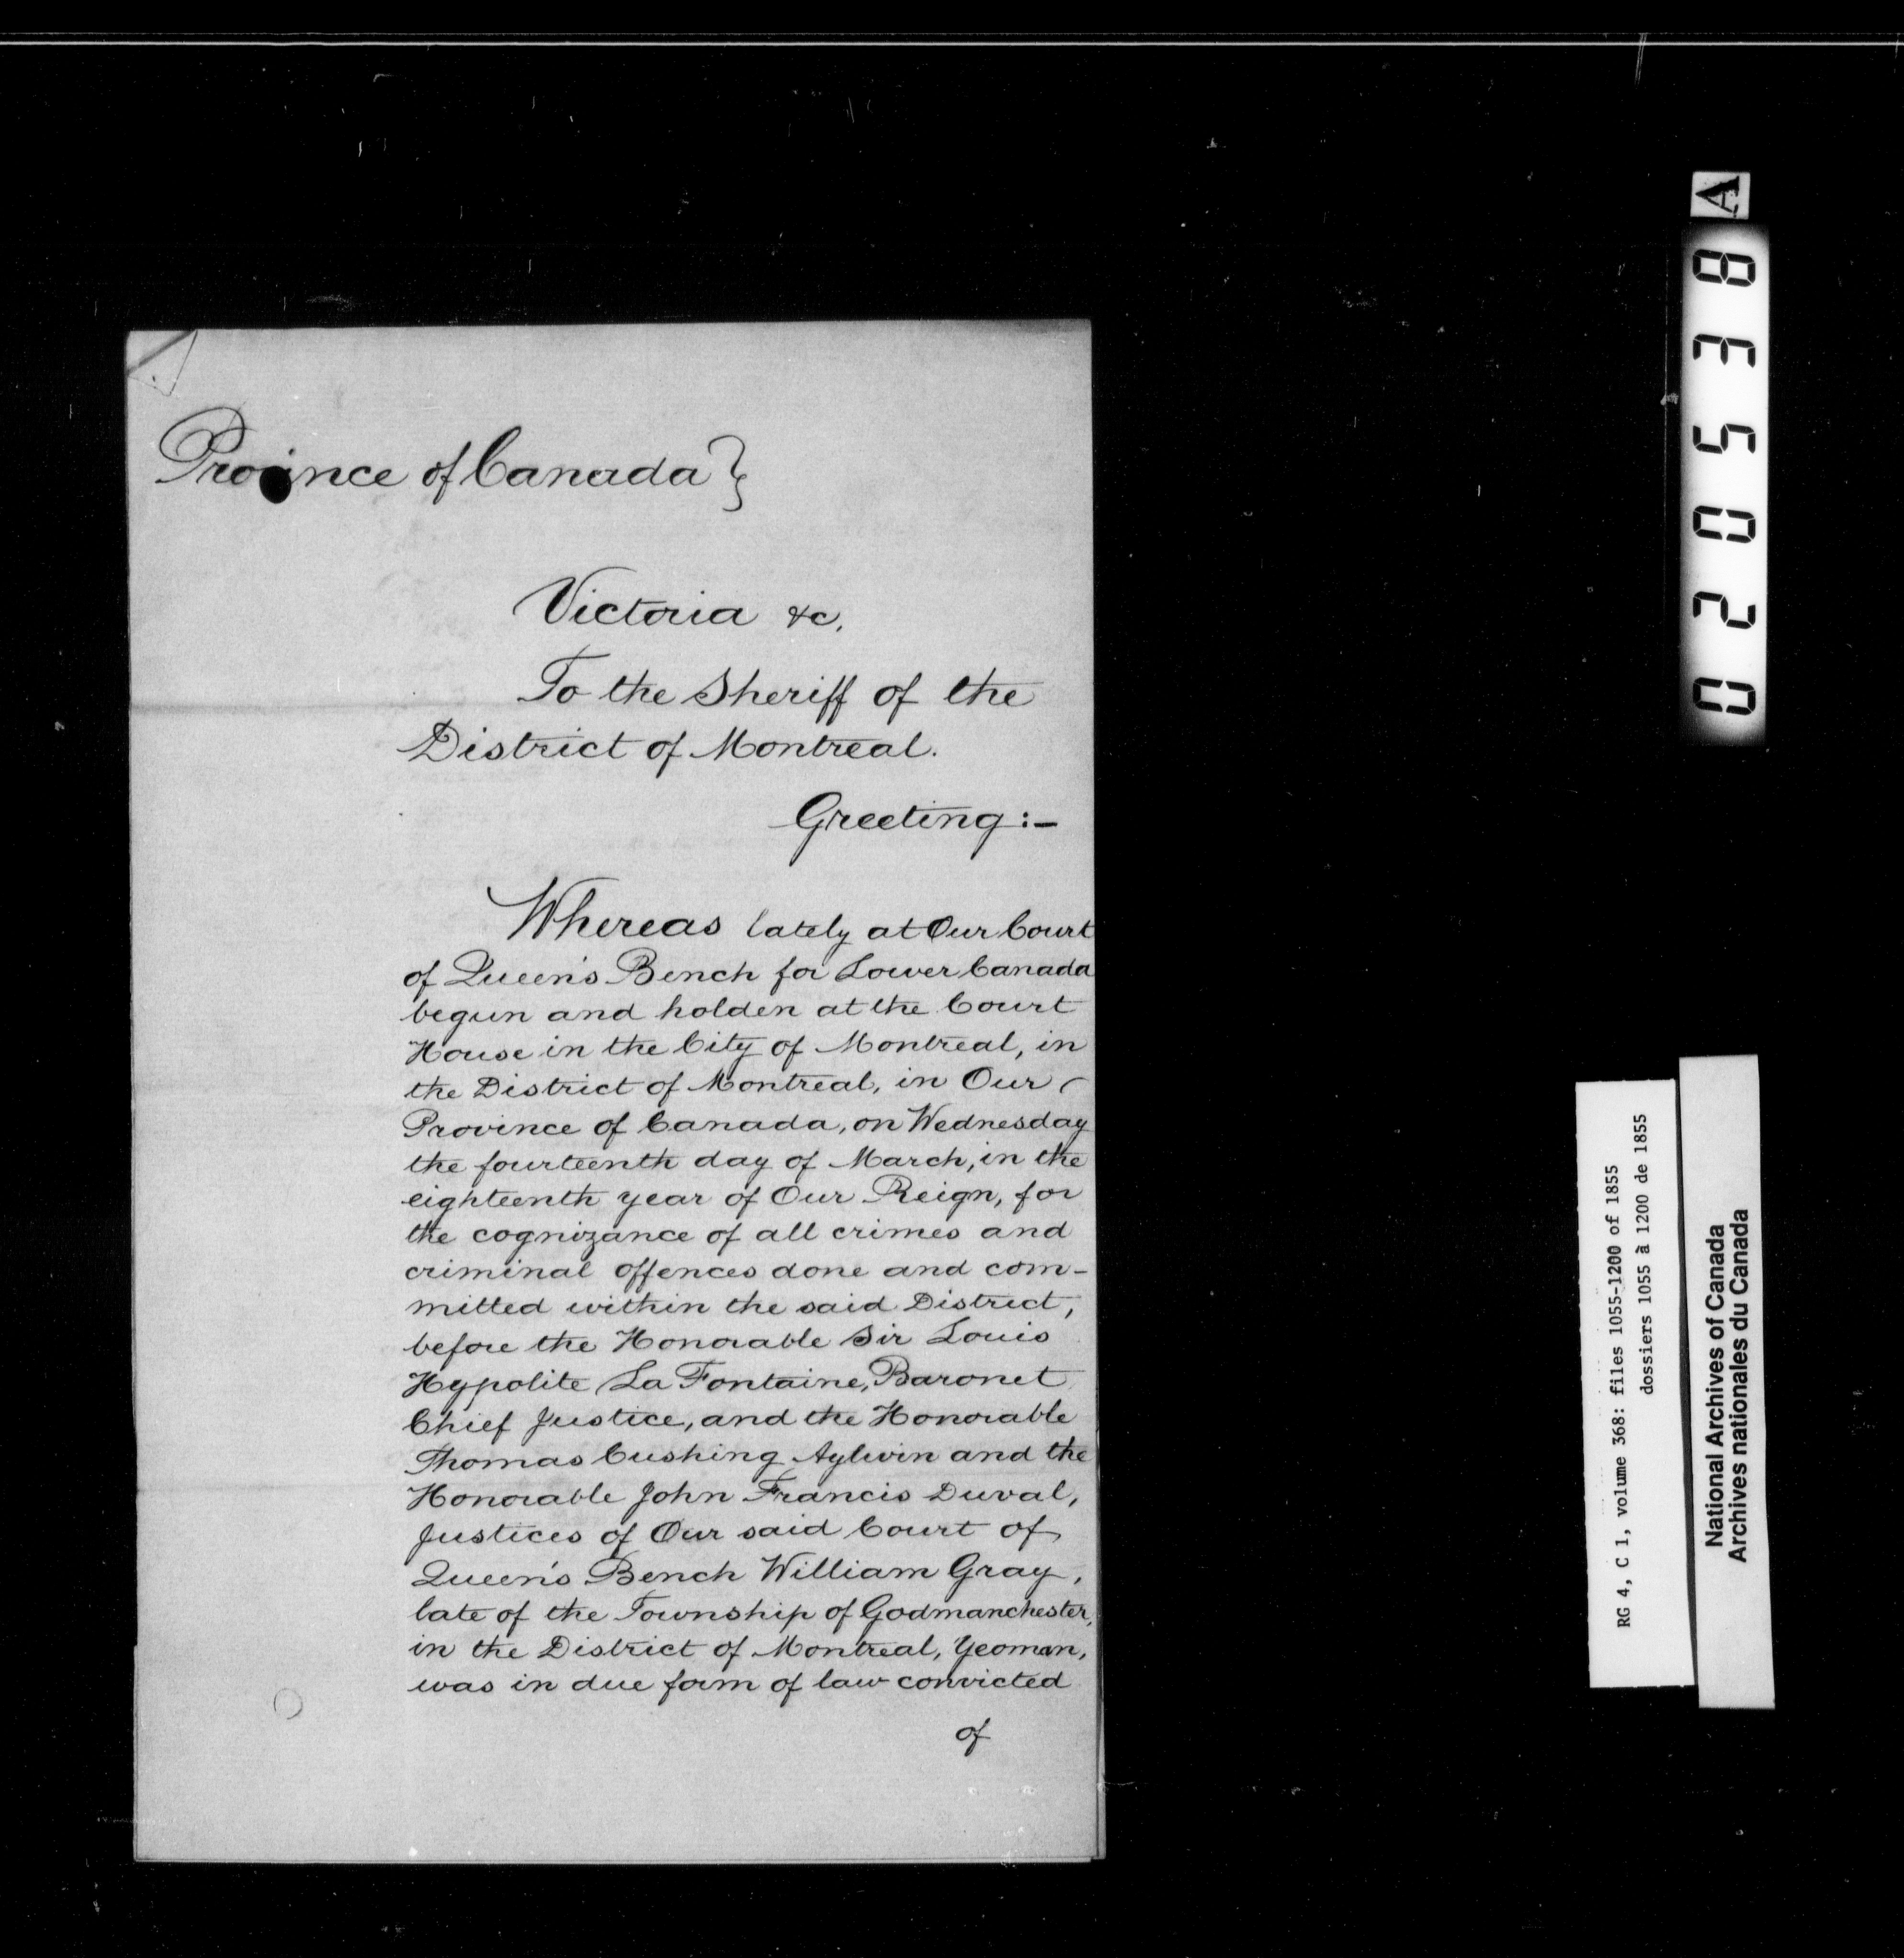 Province of Canada }
Victoria &c.
To the Sheriff of the
District of Montreal.
Greeting:-
Whereas lately at Our Court
of Queen's Bench for Lower Canada
begun and holden at the Court
House in the City of Montreal, in
the District of Montreal, in Our
Province of Canada, on Wednesday
the fourteenth day of March, in the
eighteenth year of Our Reign, for
the cognizance of all crimes and
criminal offences done and com-
mitted within the said District,
before the Honorable Sir Louis
Hypolite La Fontaine, Baronet
Chief Justice, and the Honorable
Thomas Cushing Aylwin and the
Honorable John Francis Duval,
Justices of Our said Court of
Queen's Bench William Gray,
late of the Township of Godmanchester,
in the District of Montreal, Yeoman,
was in due form of law convicted
of
A
020538
RG 4, C 1, volume 368: files 1055-1200 of 1855
dossiers 1055 à 1200 de 1855
National Archives of Canada
Archives nationales du Canada